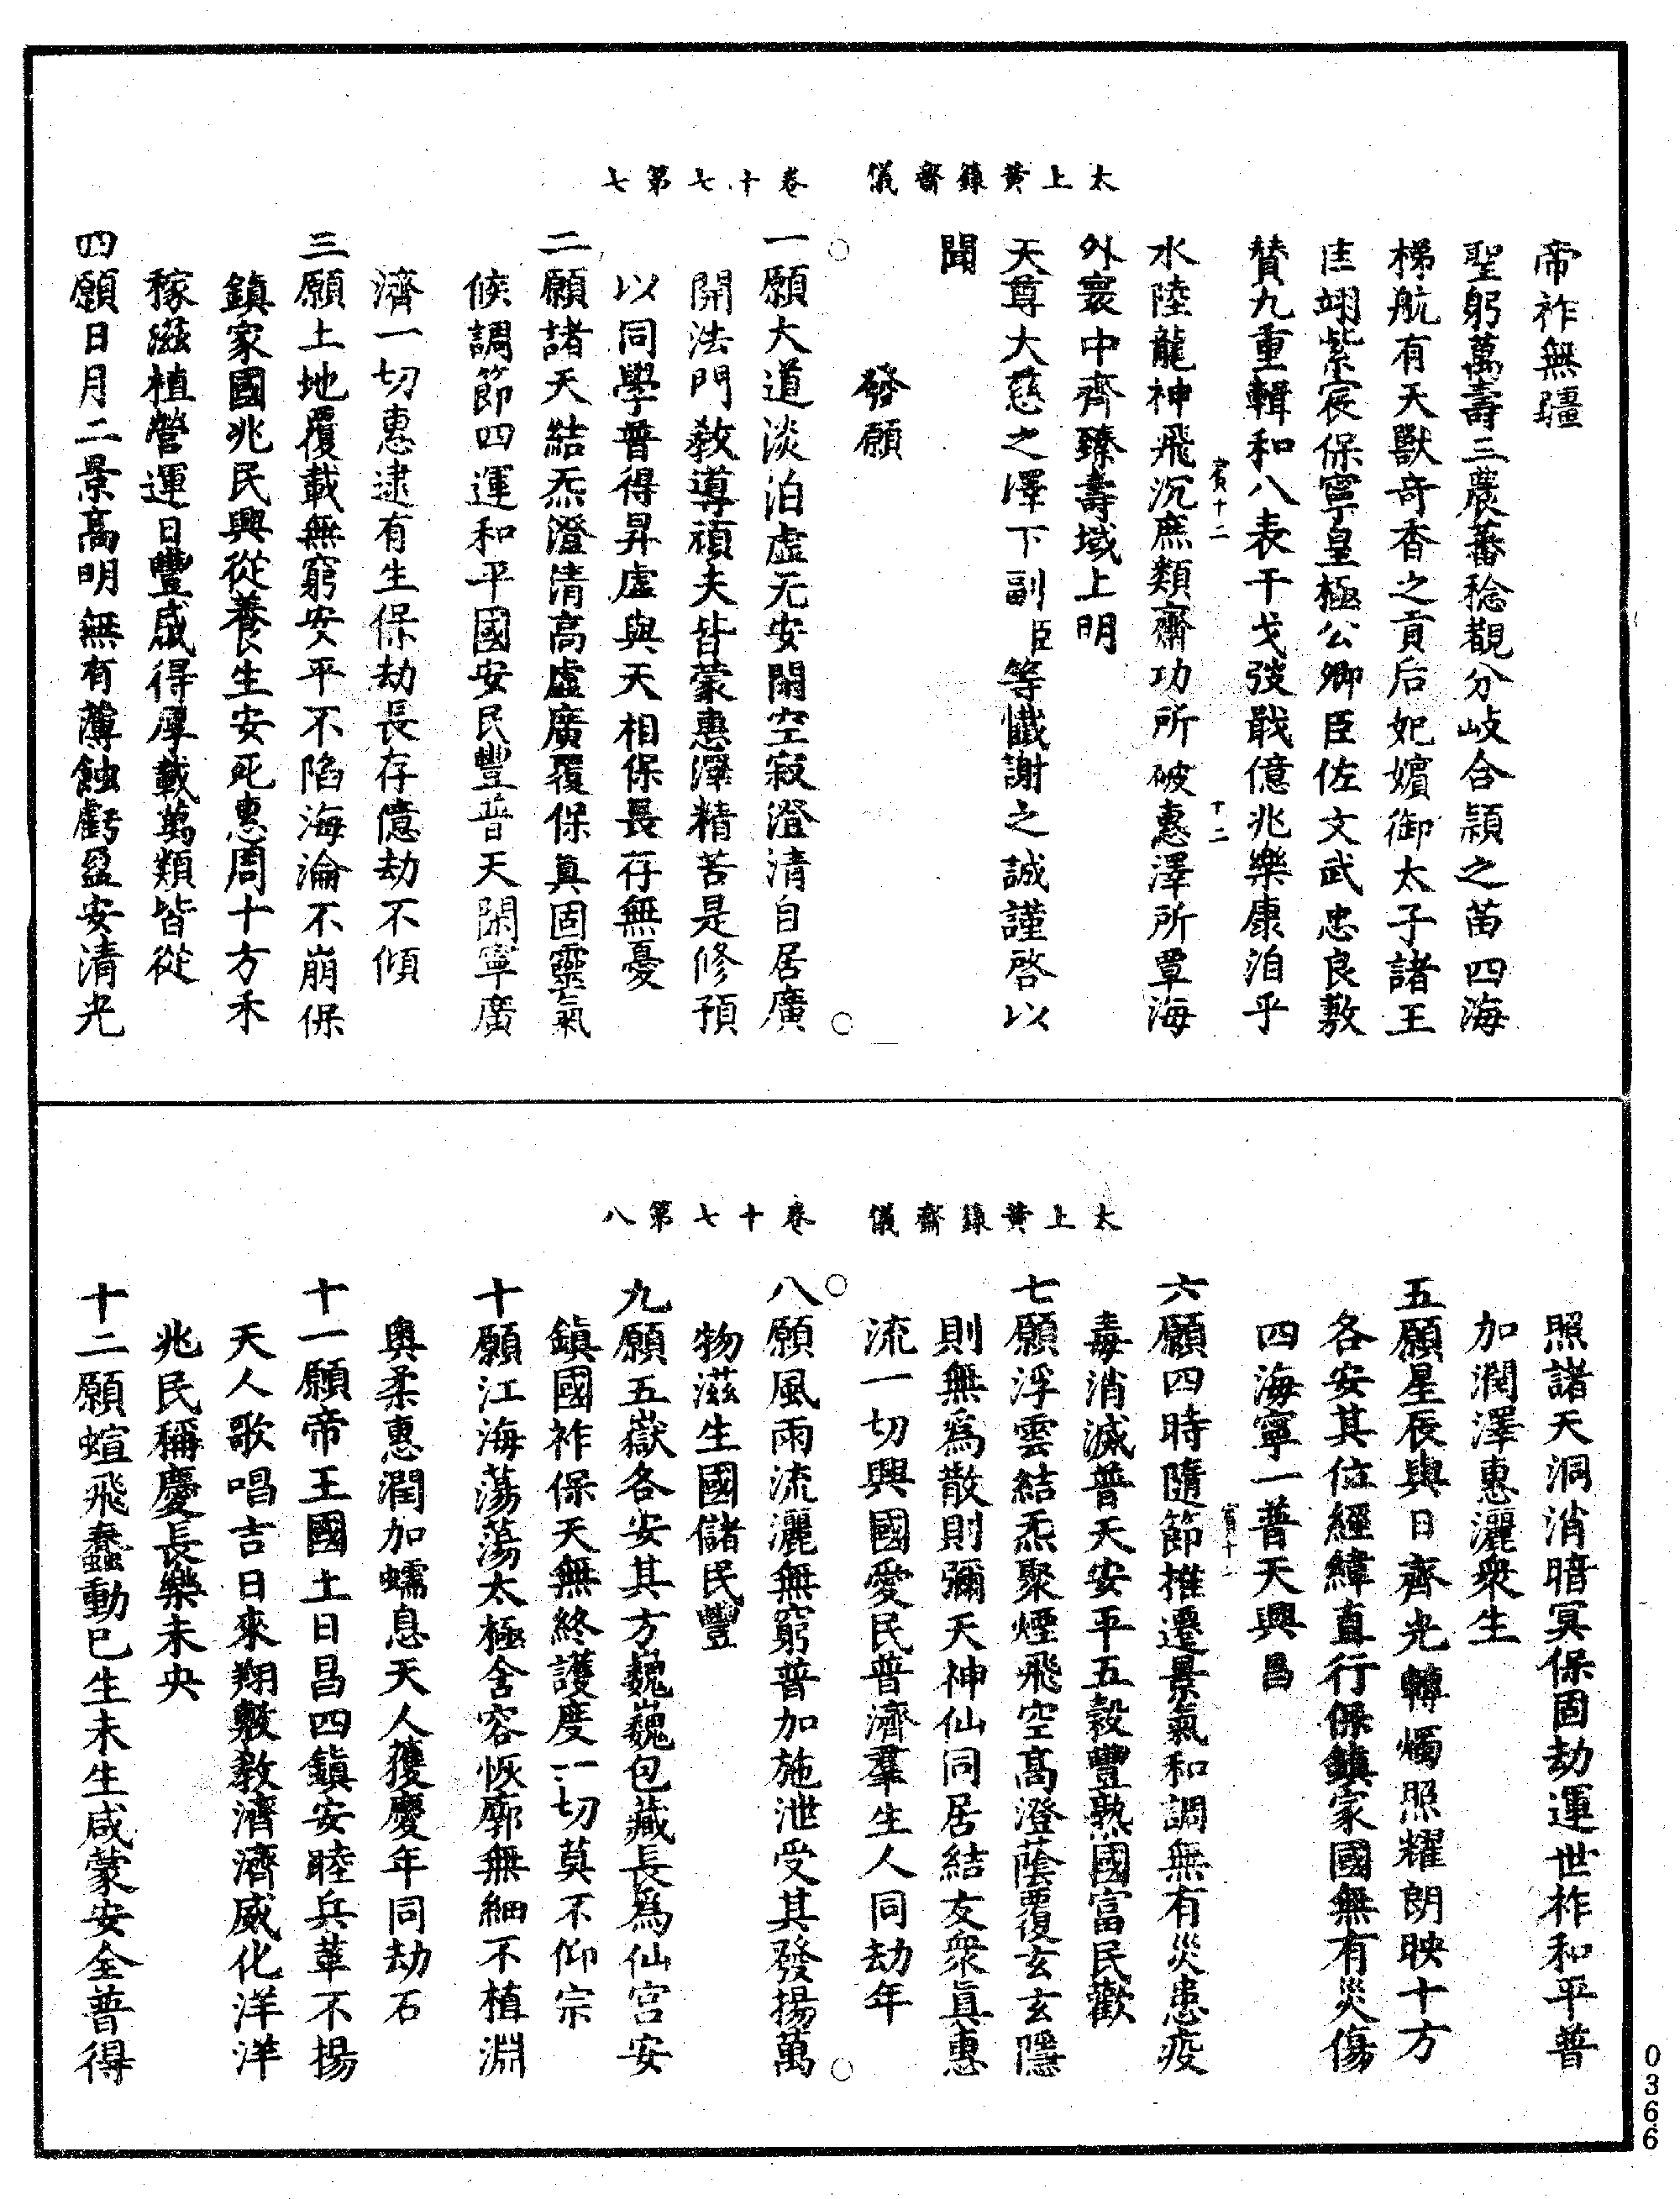 太上黃籙齋儀　卷十七第七
帝祚無疆
聖躬萬壽三農蕃稔覩分岐合頴之苗四海
梯航有天獸奇香之貢后妃嬪御太子諸王
匡翊紫宸保寧皇極公卿臣佐文武忠良敷
賛九重輯和八表干戈弢戢億兆樂康洎乎
賓十二
十二
水陸龍神飛沉庶類齋功所被惠澤所覃海
外寰中齊臻壽域上明
天尊大慈之澤下副臣等懺謝之誠謹啓以
聞
發願
一願大道淡泊虛无安閑空寂澄清自居廣
開法門敎導頑夫皆蒙惠澤精苦是修預
以同學普得昇虛與天相保長存無憂
二願諸天結炁澄清高虛廣覆保真固靈氣
候調節四運和平國安民豐普天閑寧廣
濟一切惠逮有生保劫長存億劫不傾
三願土地覆載無窮安平不陷海淪不崩保
鎮家國兆民興從養生安死惠周十方禾
稼滋植營運日豐咸得厚載萬類皆從
四願日月二景高明無有薄蝕虧盈安清光
太上黃籙齋儀　卷十七第八
照諸天洞消暗冥保固劫運世祚和平普
加潤澤惠灑衆生
五願星辰與日齊光轉燭照耀朗映十方
各安其位經緯直行保鎮家國無有災傷
四海寧一普天興昌
六願四時隨節推遷景氣和調無有災患疫
毒消滅普天安平五穀豐熟國富民歡
七願浮雲結炁聚煙飛空高澄蔭覆玄玄隱
則無爲散則彌天神仙同居結友衆真惠
流一切興國愛民普濟羣生人同劫年
八願風雨流灑無窮普加施泄受其發揚萬
物滋生國儲民豐
九願五嶽各安其方巍巍包藏長爲仙宮安
鎮國祚保天無終護度一切莫不仰宗
十願江海蕩蕩太極含容恢廓無細不植淵
奧柔惠潤加蠕息天人獲慶年同劫石
十一願帝王國土日昌四鎮安睦兵革不揚
天人歌唱吉日來翔敷敎濟濟威化洋洋
兆民稱慶長樂未央
十二願蝖飛蠢動已生未生咸蒙安全普得
0366